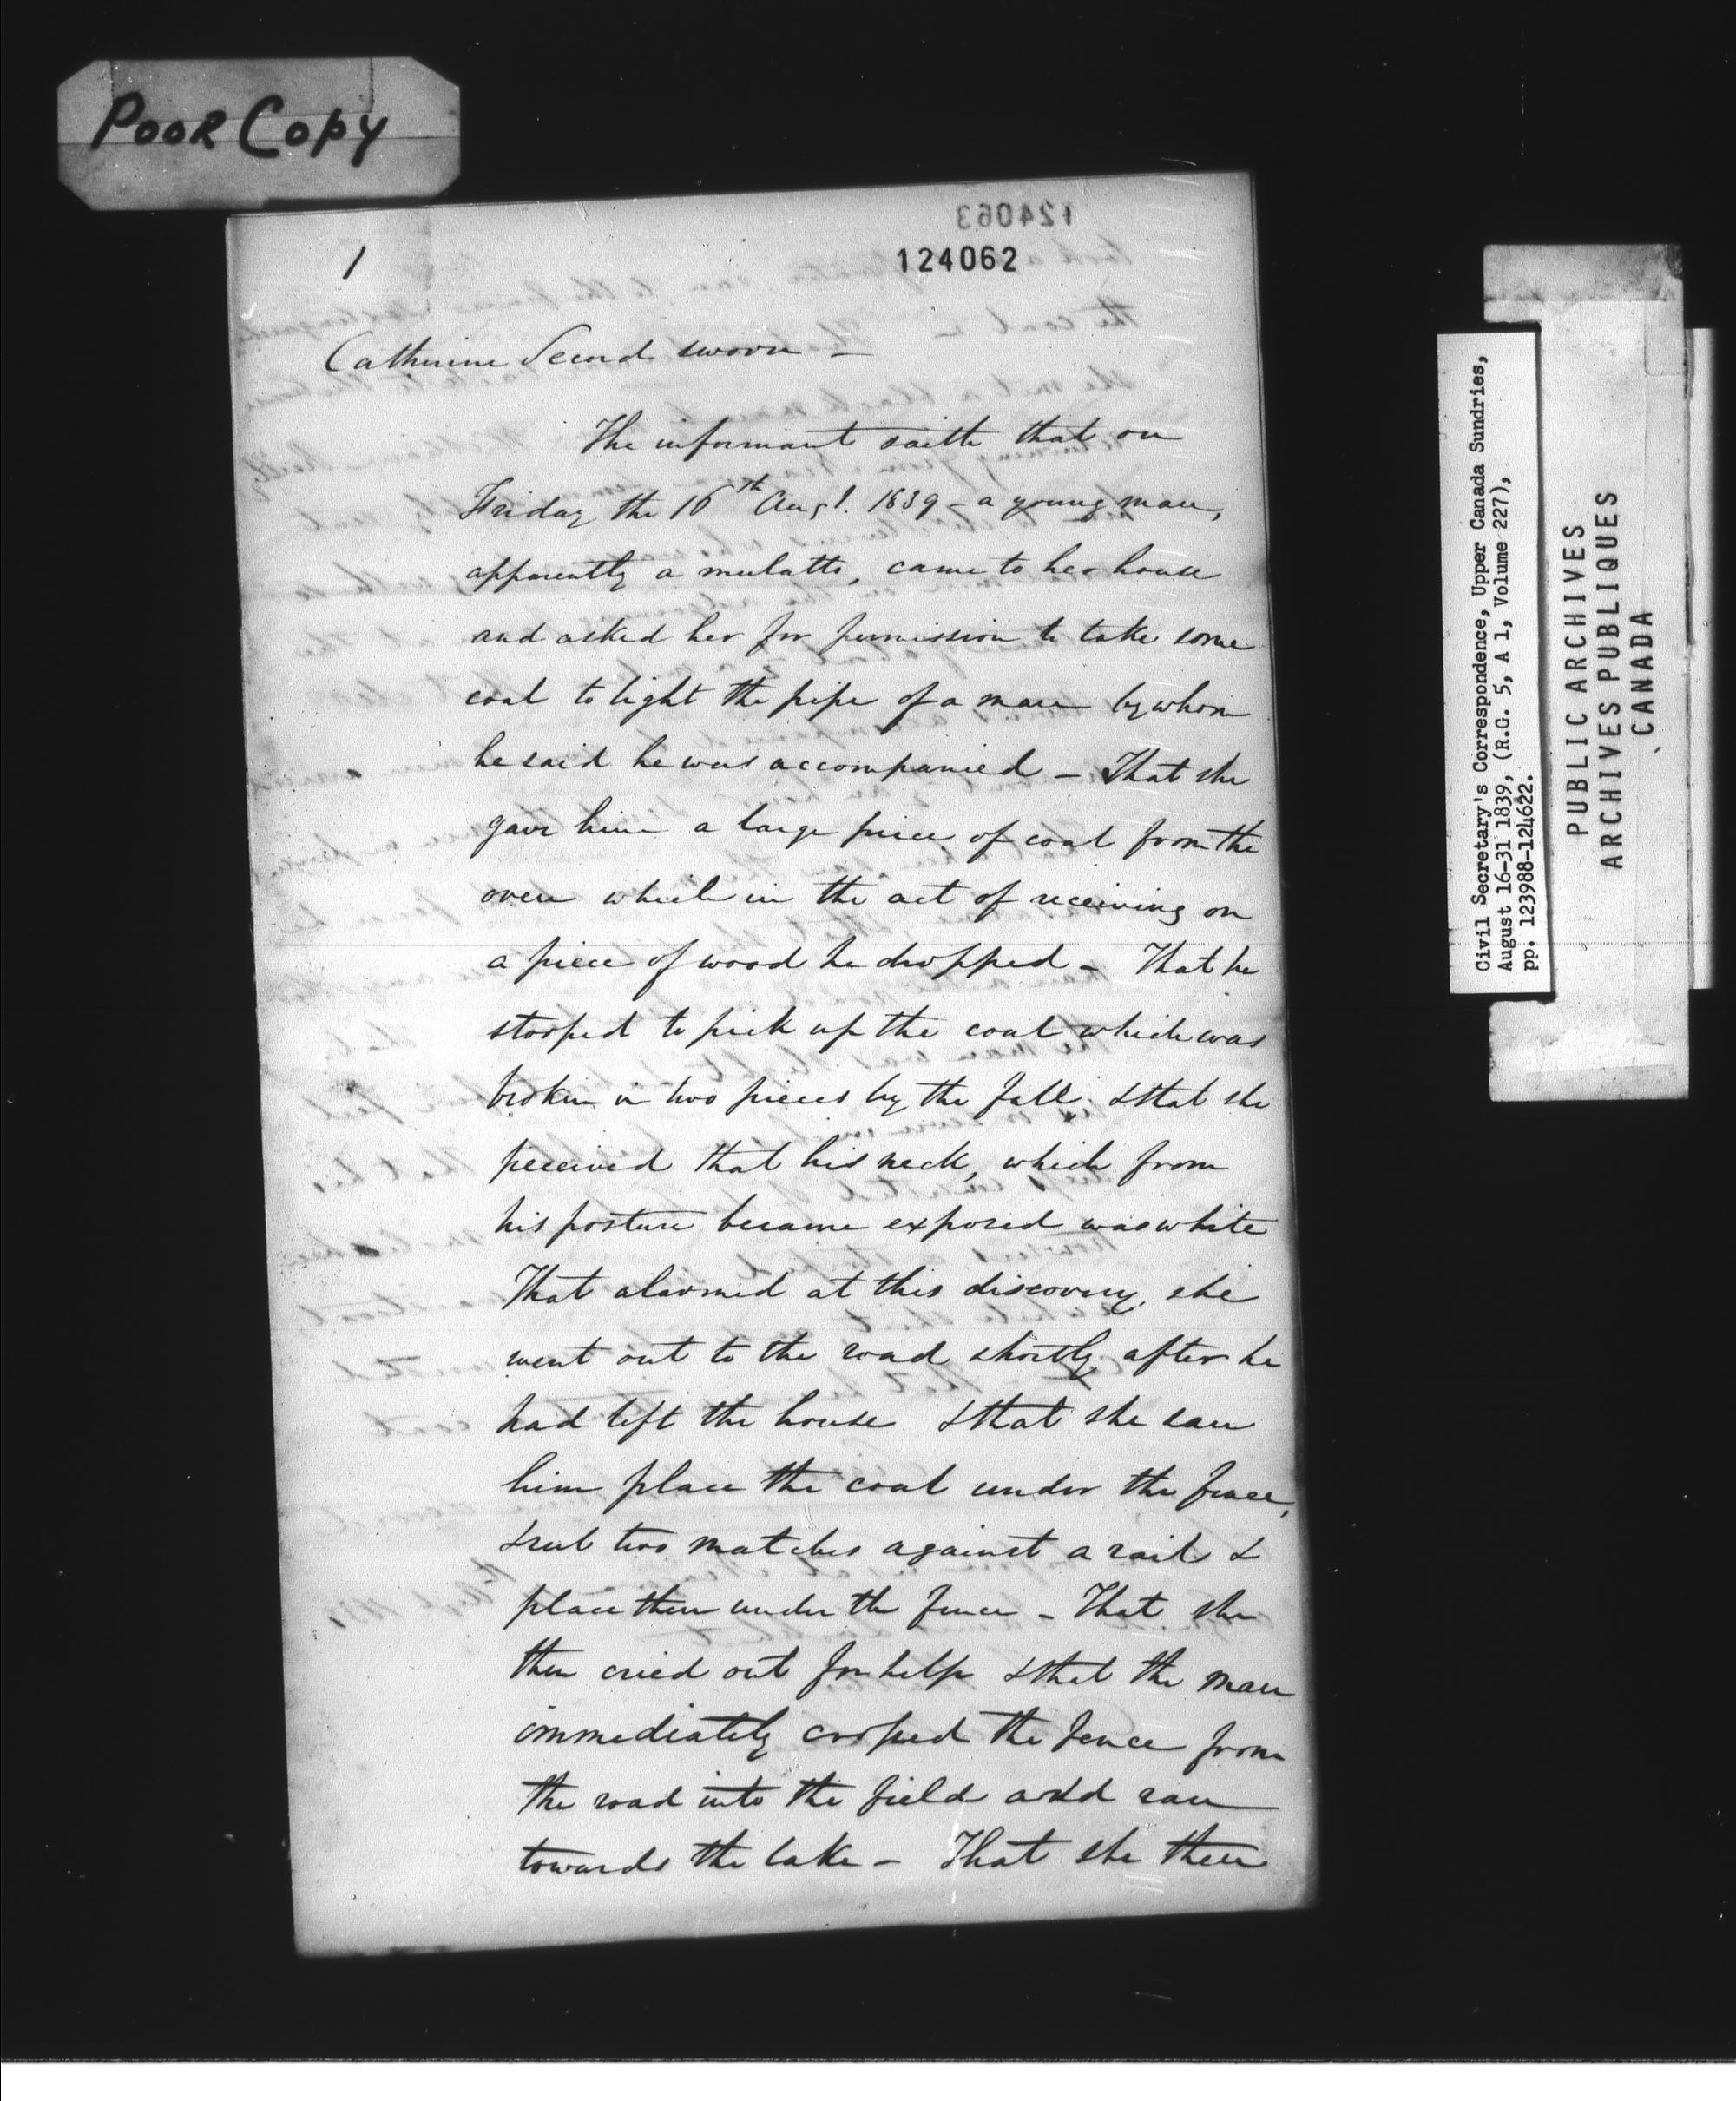 POOR COPY
124063
124062
1
Catherine Secord sworn –
The informant saith that on
Friday the 16th Augt. 1839 – a young man,
apparently a mulatto, came to her house
and asked her for permission to take some
coal to light the pipe of a man by whom
he said he was accompanied – That she
gave him a large piece of coal from the
oven which in the act of receiving on
a piece of wood he dropped – That he
stooped to pick up the coal which was
broken in two pieces by the fall & that she
peceived that his neck, which from
his posture became exposed was white
That alarmed at this discovery, she
went out to the road shortly after he
had left the house & that she saw
him place the coal under the fence,
& rub two matches against a rail &
place them under the fence – That she
then cried out for help & that the man
immediately crossed the fence from
the road into the field and ran
towards the lake – That she then
Civil Secretary's Correspondence, Upper Canada Sundries,
August 16-31 1839, (R.G. 5, A 1, Volume 227),
pp. 123988-124622.
PUBLIC ARCHIVES
ARCHIVES PUBLIQUES
CANADA